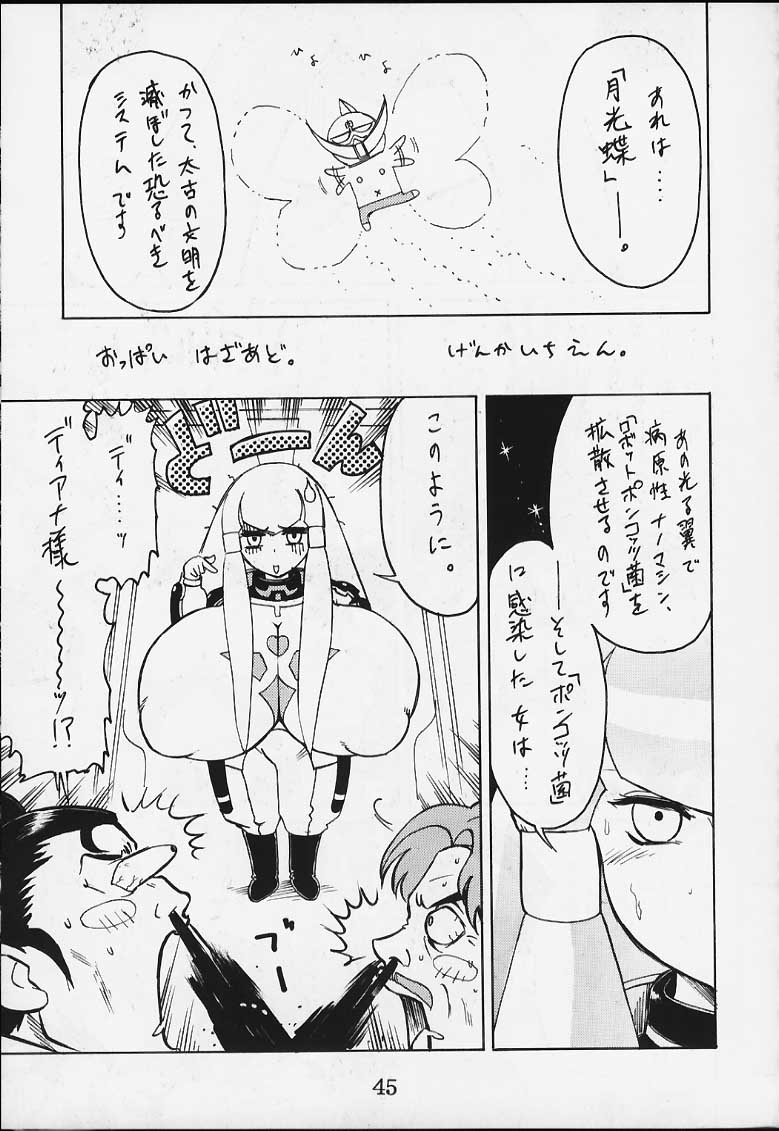 あれは‥‥
「月光蝶」――。
ひよ
ひよ
かつて、太古の文明を
滅ぼした恐るべき
システムです
げんかいちえん。
おっぱい はざあど。
あの光る翼で
病原性ナノマシン、
「ロボットポンコッツ菌」を
拡散させるのです
――そして「ポンコッツ菌」
に感染した女は…
このように。
どーーん
ディ‥‥ッ
ディアナ様〜〜〜〜ッ!?
ブーー
45